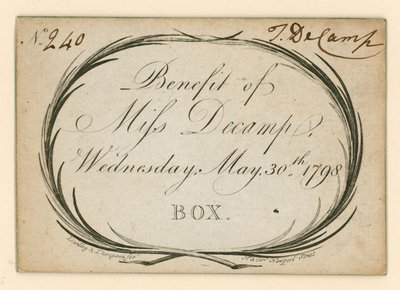 No. 240
T. DeCamp
Benefit of
Miſs Decamp.
Wednesday, May, 30.th 1798
BOX.
Newport Street